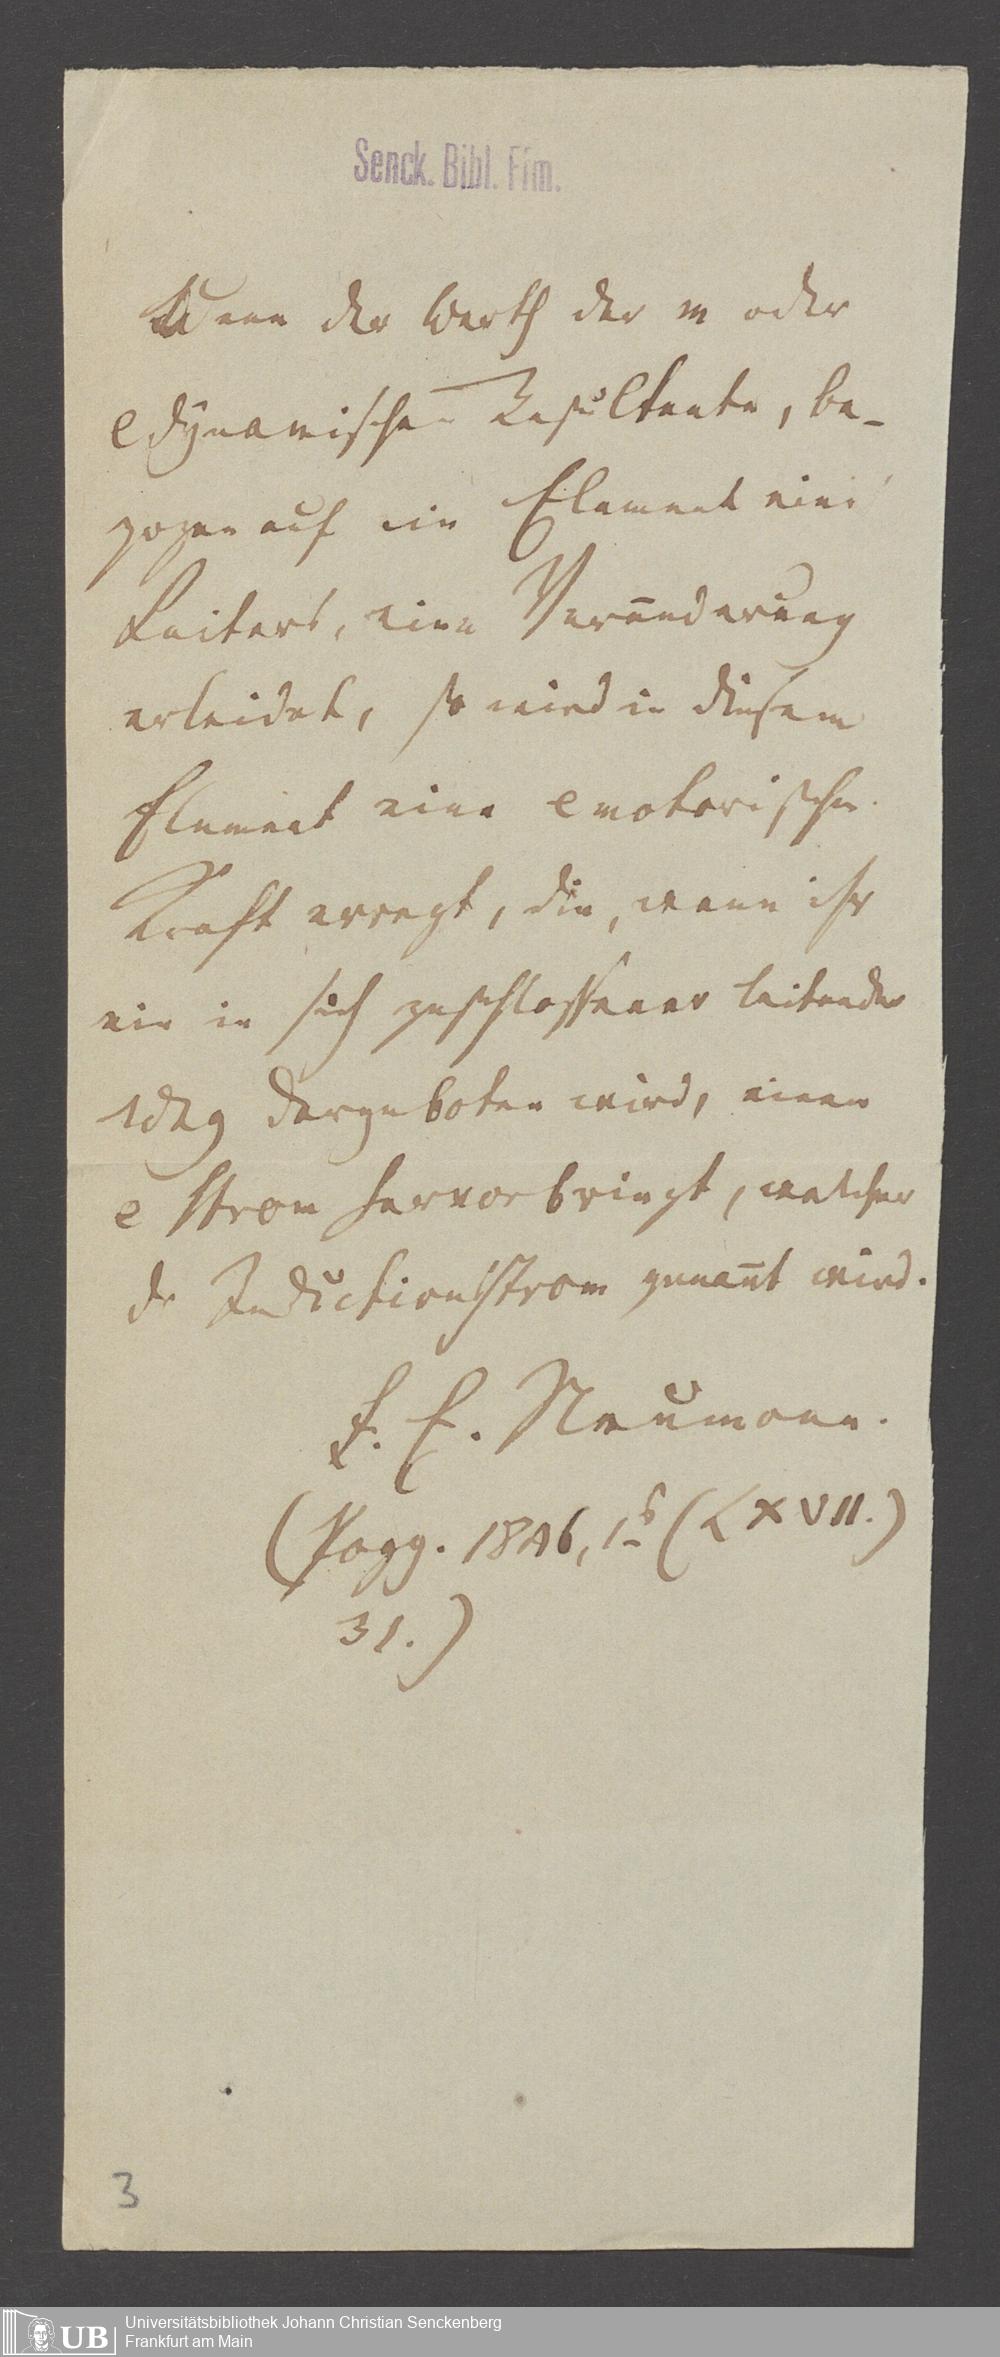 Senck. Bibl. Ffm.
Wenn der Werth der m oder
e dynamischen Resultante, be-
zogen auf ein Element eines
Leiters, eine Veränderung
erleidet, so wird in diesem
Element eine e motorische
Kraft erregt, die, wenn ihr
ein in sich geschlossener leitender
dargeboten wird, einen
e Strom hervorbringt, welcher
der Inductionsstrom genannt wird.
F. E. Neumann.
(Pogg. 1846, 1 (LXVII.)
31.)
3
UB
Universitätsbibliothek Johann Christian Senckenberg
Frankfurt am Main